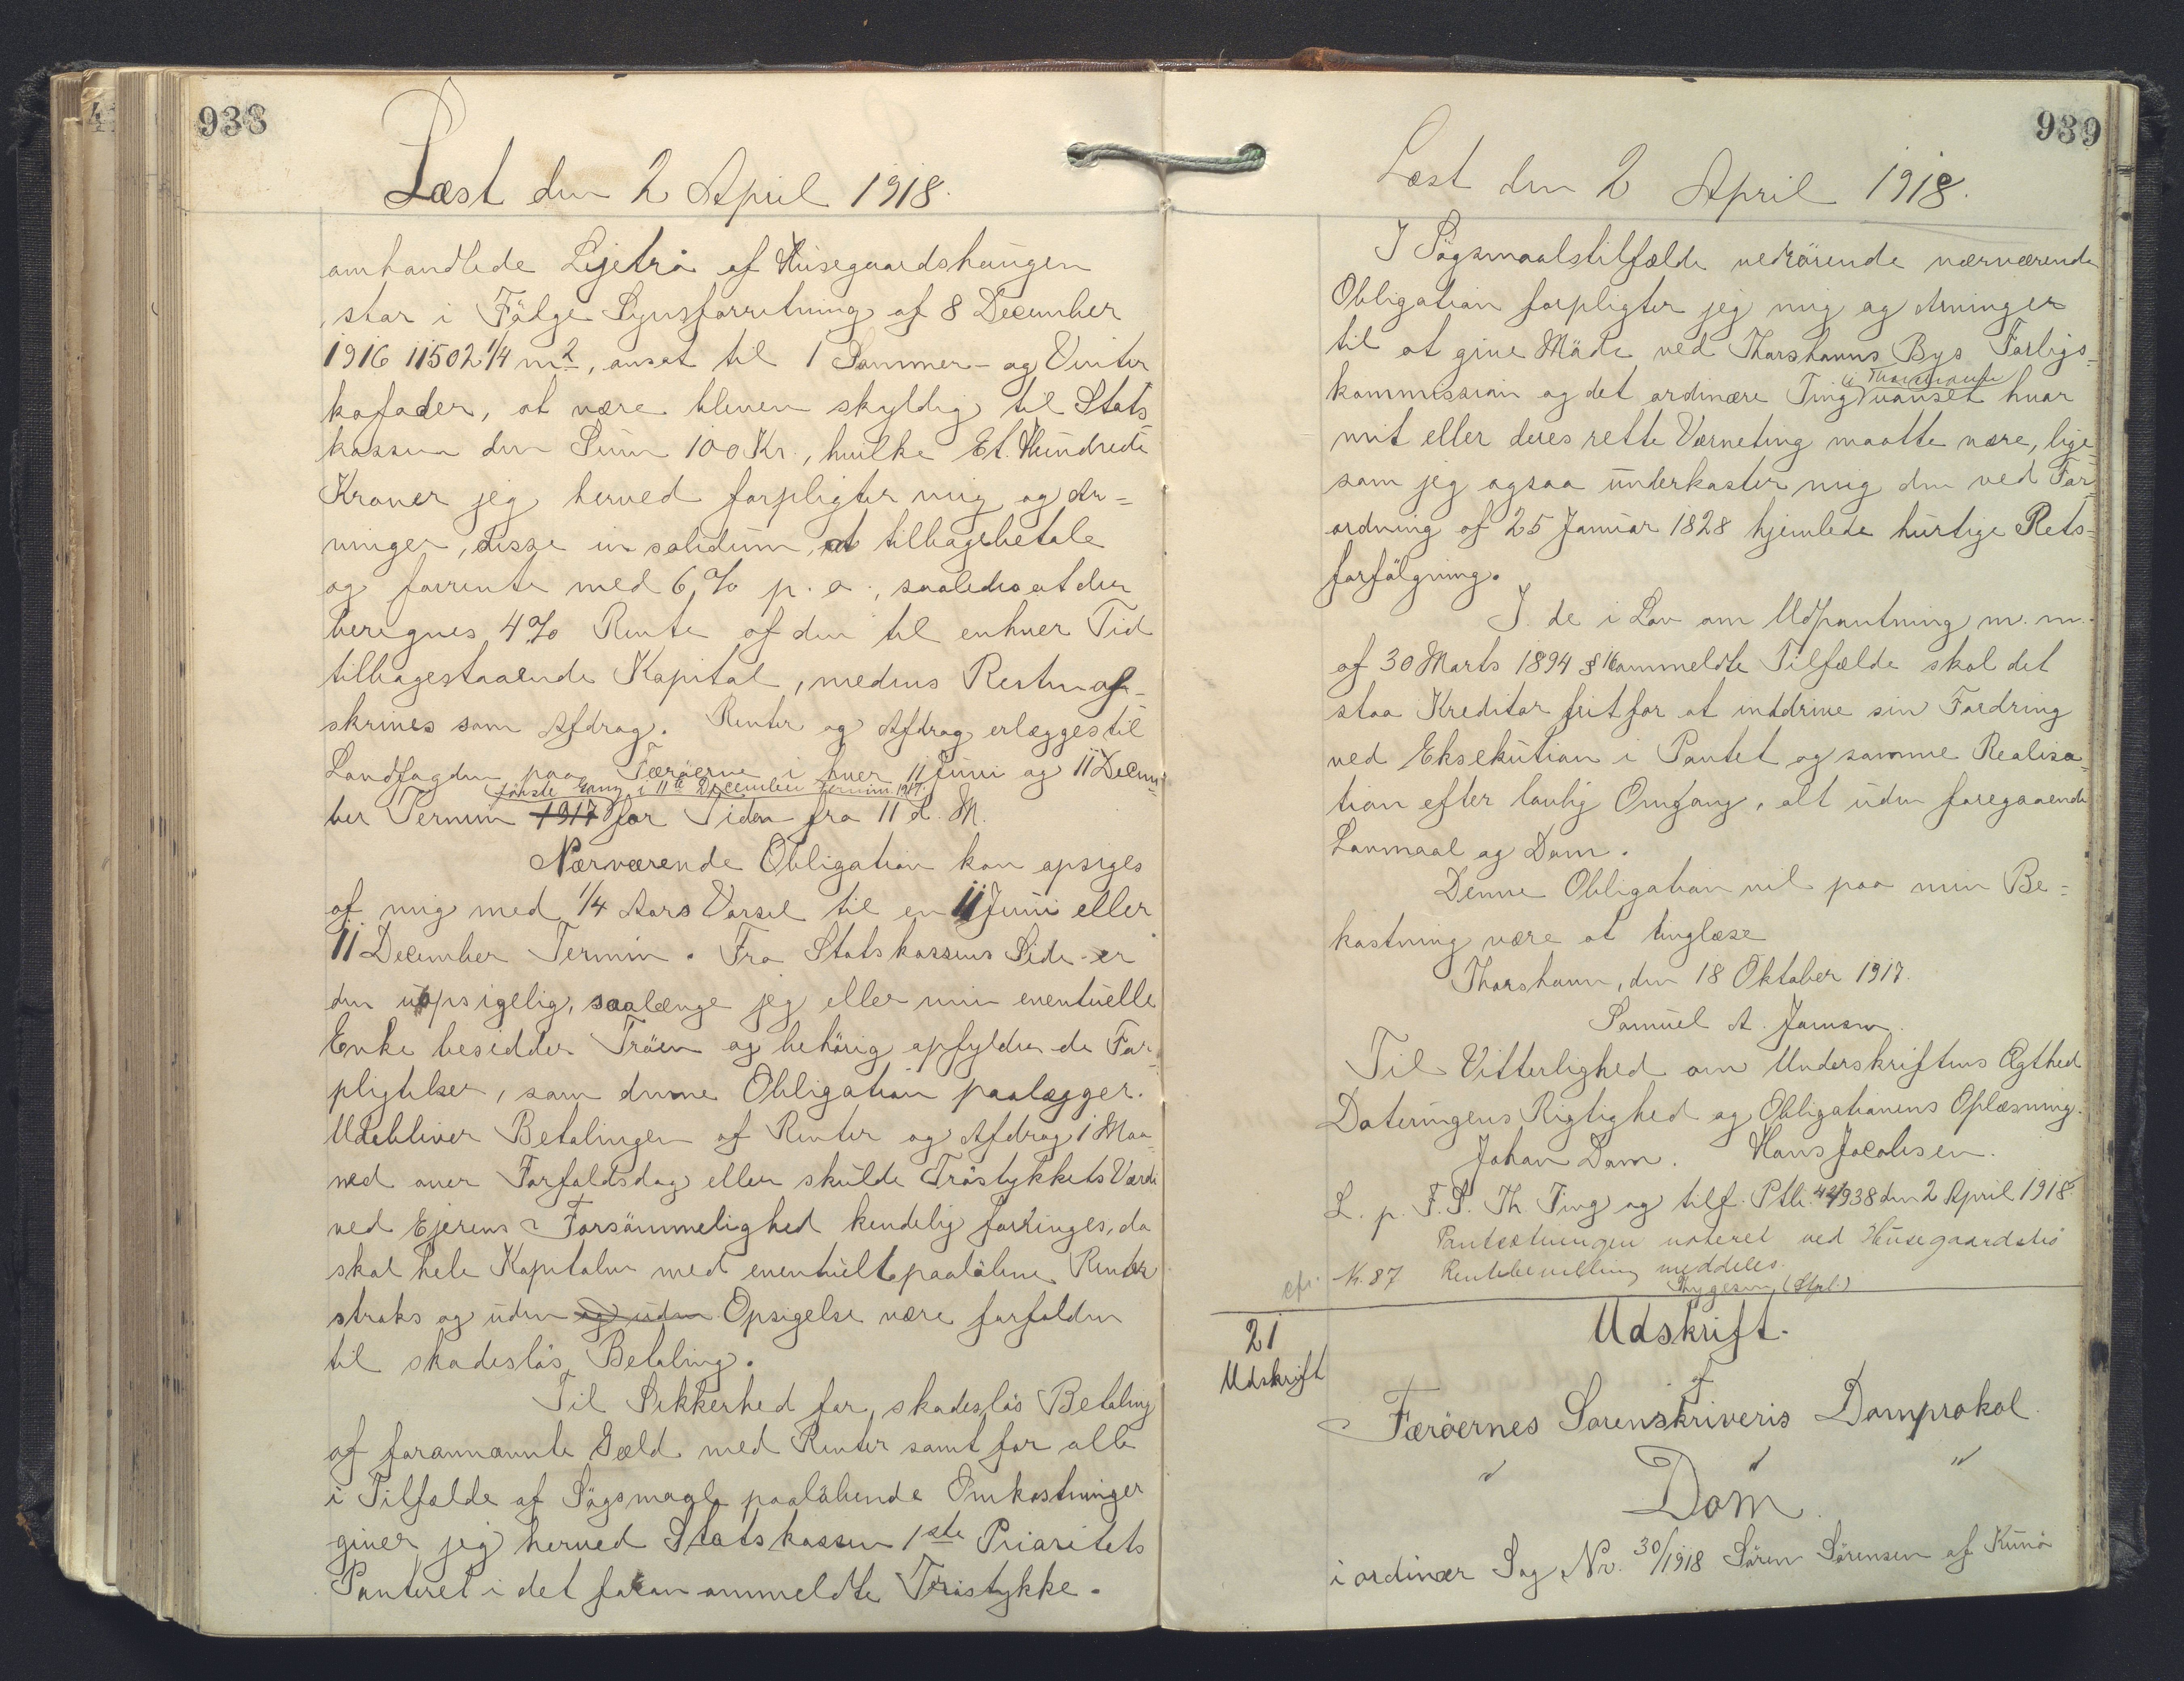 938
Læst den 2 April 1918.
omhandlede Lejetrö af Husegaardshaugen
, stor i Fölge Synsforretning af 8 December
1916 11502 1/4 m2, ansat til 1 Sommer- og Vinter
kofoder, at være bleven skyldig til Stats
kassen den Sum 100 Kr., hvilke Et Hundrede
Kroner jeg herved forpligter mig og Ar=
vinger, disse in solidum, at tilbagebetale
og forrente med 6 % p. a., saaledes at der
beregnes 4 % Rente af den til enhver Tid
tilbagestaaende Kapital, medens Resten af-
skrives som Afdrag. Renter og Afdrag erlægges til
Landfogden paa Færöerne i hver 11 Juni og 11 Decem=
förste Gang i 11te December Termin 1917
ber Termin 1917 for Tiden fra 11 d. M.
Nærværende Obligation kan opsiges
af mig med 1/4 Aars Varsel til en 11 Juni eller
11 December Termin. Fra Statskassens Side er
den uopsigelig, saalænge jeg eller min eventuelle
Enke besidder Tröen og behörig opfylder de For=
pligtelser, som denne Obligation paalægger.
Udebliver Betalingen af Renter og Afdrag 1 Maa=
ned over Forfaldsdag eller skulde Tröstykkets Værdi
ved Ejerens Forsömmelighed kendelig forringes, da
skal hele Kapitalen med eventuelt paalöbne Renter
straks og uden og uden Opsigelse være forfalden
til skadeslös Betaling.
Til Sikkerhed for skadeslös Betaling
af forannævnte Gæld med Renter samt for alle
i Tilfælde af Sögsmaal paalöbende Omkostninger
giver jeg herved Statskassen 1ste Prioritets
Panteret i det foran ommeldte Tröstykke.
939
Læst den 2 April 1918.
I Sögsmaalstilfælde vedrörende nærværende
Obligation forpligter jeg mig og Arvinger
til at give Möde ved Thorshavns Bys Forligs=
i Thorshavn
kommission og det ordinære Ting uanset hvor
mit eller deres rette Værneting maatte være, lige=
som jeg ogsaa underkaster mig den ved For=
ordning af 25 Januar 1828 hjemlede hurtige Rets=
forfölgning.
I de i Lov om Udpantning m. m.
af 30 Marts 1894 § 16 ommeldte Tilfælde skal det
staa Kreditor frit for at inddrive sin Fordring
ved Eksekution i Pantet og samme Realisa=
tion efter lovlig Omgang, alt uden foregaaende
Lovmaal og Dom.
Denne Obligation vil paa min Be=
kostning være at tinglæse
Thorshavn, den 18 Oktober 1917.
Samuel A. Jensen.
Til Vitterlighed om Underskriftens Ægthed
Dateringens Rigtighed og Obligationens Oplæsning.
Johan Dam. Hans Jacobsen.
L. p. F. S. Th. Ting og tilf. Ptb. 42/938 den 2 April 1918.
Pantsætningen noteret ved Husegaardets
cfr. K. 87 Rentebevilling meddeles.
Thygesen (St.)
21
Udskrift
Udskrift.
af
Færöernes Sorenskriveris Domprokol.
" " "
Dom
i ordinær Sag Nr. 30/1918 Sören Sörensen af Kunö